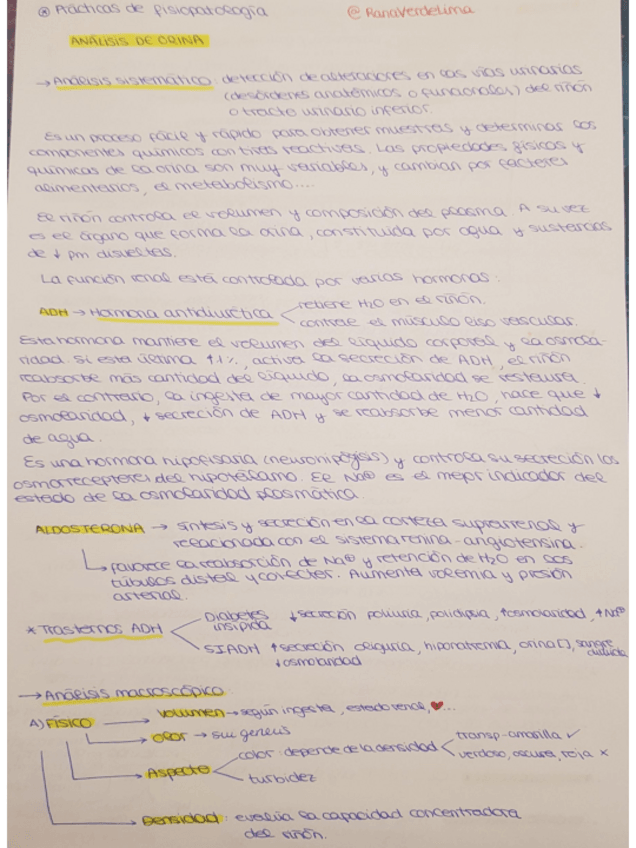 ⊛ Prácticas de Fisiopatología @RanaVerdeLima
ANÁLISIS DE ORINA
→ Análisis sistemático: detección de alteraciones en las vías urinarias
(desórdenes anatómicos o funcionales) del riñón
o tracto urinario inferior.
Es un proceso fácil y rápido para obtener muestras y determinar los
componentes químicos con tiras reactivas. Las propiedades físicas y
químicas de la orina son muy variables, y cambian por factores
alimentarios, el metabolismo....
El riñón controla el volumen y composición del plasma. A su vez
es el órgano que forma la orina, constituida por agua y sustancias
de ↓ pm disueltas.
La función renal está controlada por varias hormonas:
ADH → Hormona antidiurética < retiene H2O en el riñón.
contrae el músculo liso vascular.
Esta hormona mantiene el volumen del líquido corporal y la osmola-
ridad. Si esta última ↑1%, activa la secreción de ADH, el riñón
reabsorbe más cantidad del líquido, la osmolaridad se restaura.
Por el contrario, la ingesta de mayor cantidad de H2O, hace que ↓
osmolaridad, ↓ secreción de ADH y se reabsorbe menor cantidad
de agua.
Es una hormona hipofisaria (neurohipófisis) y controla su secreción los
osmorreceptores del hipotálamo. El Na⊕ es el mejor indicador del
estado de la osmolaridad plasmática.
ALDOSTERONA → síntesis y secreción en la corteza suprarrenal y
relacionada con el sistema renina-angiotensina.
↳ favorece la reabsorción de Na⊕ y retención de H2O en los
túbulos distal y colector. Aumenta volemia y presión
arterial.
* Trastornos ADH < Diabetes insípida ↓ secreción poliuria, polidipsia, ↑osmolaridad, ↑Na⊕
SIADH ↑ secreción oliguria, hiponatremia, orina [], sangre diluida
↓osmolaridad
→ Análisis macroscópico
A) FÍSICO → Volumen → según ingesta, estado renal, ♥...
→ Olor → sui generis
→ Aspecto < color: depende de la densidad < transp-amarilla ✓
verdoso, oscura, roja ×
turbidez
→ Densidad: evalúa la capacidad concentradora
del riñón.